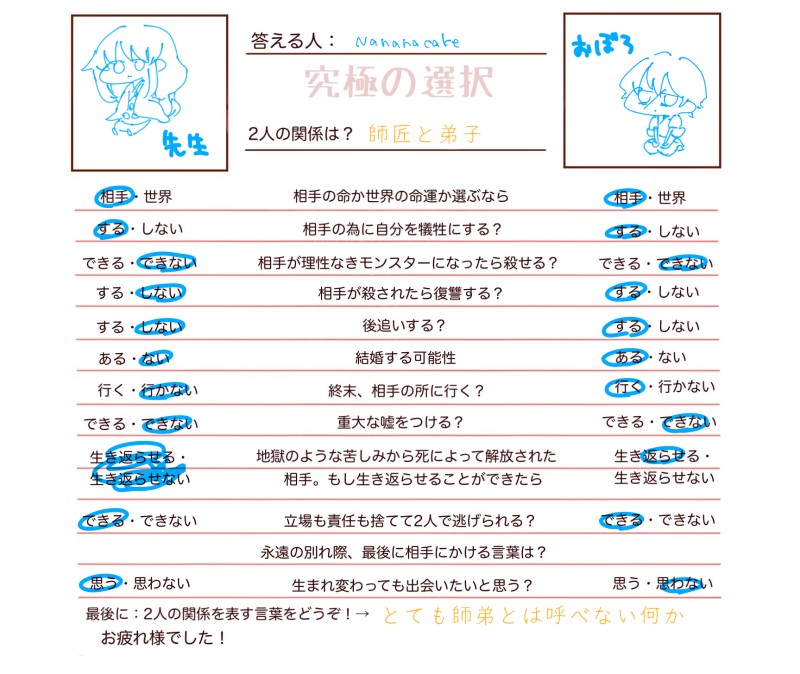 答える人： Nananacake
おぼろ
究極の選択
先生
2人の関係は？ 師匠と弟子
相手・世界 相手の命か世界の命運か選ぶなら 相手・世界
する・しない 相手の為に自分を犠牲にする？ する・しない
できる・できない 相手が理性なきモンスターになったら殺せる？ できる・できない
する・しない 相手が殺されたら復讐する？ する・しない
する・しない 後追いする？ する・しない
ある・ない 結婚する可能性 ある・ない
行く・行かない 終末、相手の所に行く？ 行く・行かない
できる・できない 重大な嘘をつける？ できる・できない
生き返らせる・ 地獄のような苦しみから死によって解放された 生き返らせる・
生き返らせない 相手。もし生き返らせることができたら 生き返らせない
できる・できない 立場も責任も捨てて2人で逃げられる？ できる・できない
永遠の別れ際、最後に相手にかける言葉は？
思う・思わない 生まれ変わっても出会いたいと思う？ 思う・思わない
最後に：2人の関係を表す言葉をどうぞ！→ とても師弟とは呼べない何か
お疲れ様でした！